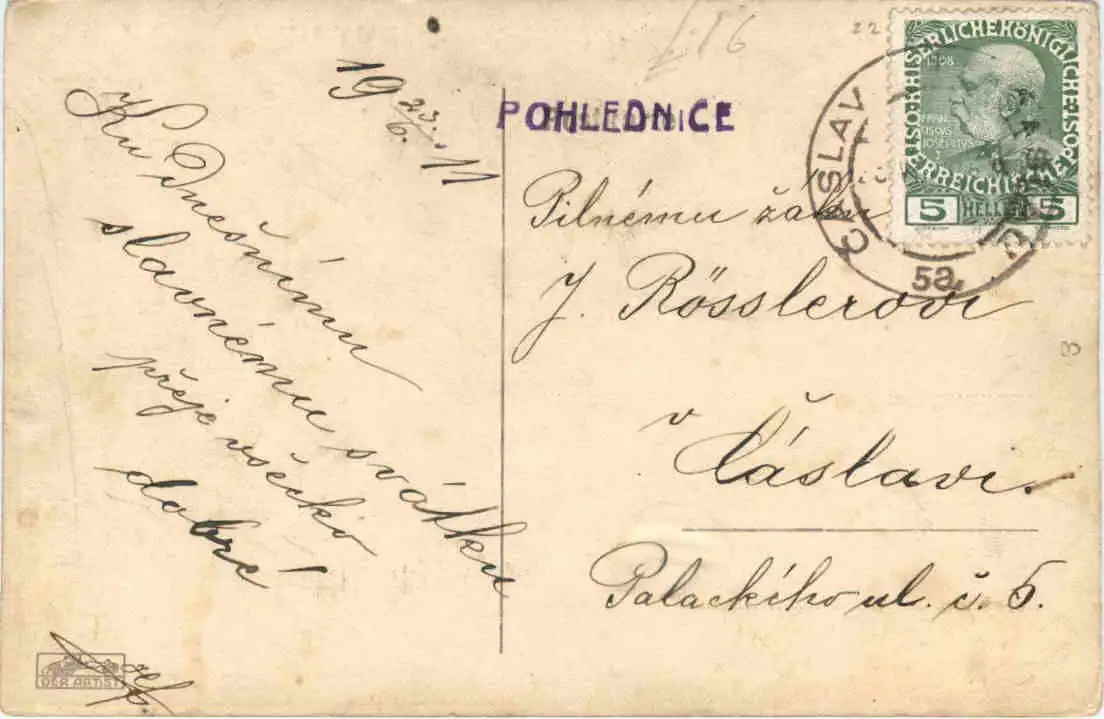 19 23./6. 11
Ku Dnešnímu
slavnému svátku
přeje všecko
dobré
DER ARTIST
£16
22
POHLEDNICE
ČÁSLAV
5a
KAISERLICHE KÖNIGLICHE
ÖSTERREICHISCHE POST
1908
FRAN
CISCVS
JOSEPHVS I
5 HELLER 5
Pilnému žáku
J. Rösslerovi
v Čáslavi.
Palackého ul. č. 5.